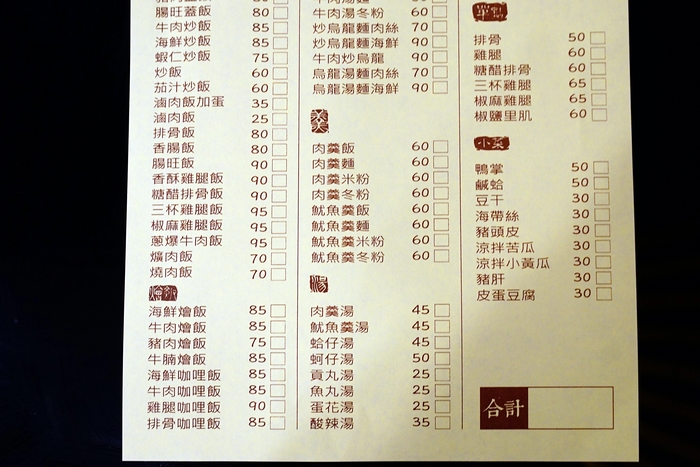 腸旺蓋飯 80
牛肉炒飯 85
海鮮炒飯 85
蝦仁炒飯 75
炒飯 60
茄汁炒飯 60
滷肉飯加蛋 35
滷肉飯 25
排骨飯 80
香腸飯 80
腸旺飯 90
香酥雞腿飯 90
糖醋排骨飯 90
三杯雞腿飯 95
椒麻雞腿飯 95
蔥爆牛肉飯 95
爌肉飯 70
燒肉飯 70
燴飯
海鮮燴飯 85
牛肉燴飯 85
豬肉燴飯 75
牛腩燴飯 85
海鮮咖哩飯 85
牛肉咖哩飯 85
雞腿咖哩飯 90
排骨咖哩飯 85
牛肉湯冬粉 60
炒烏龍麵肉絲 70
炒烏龍麵海鮮 90
牛肉炒烏龍 90
烏龍湯麵肉絲 70
烏龍湯麵海鮮 90
羹
肉羹飯 60
肉羹麵 60
肉羹米粉 60
肉羹冬粉 60
魷魚羹飯 60
魷魚羹麵 60
魷魚羹米粉 60
魷魚羹冬粉 60
湯
肉羹湯 45
魷魚羹湯 45
蛤仔湯 45
蚵仔湯 50
貢丸湯 25
魚丸湯 25
蛋花湯 25
酸辣湯 35
單點
排骨 50
雞腿 60
糖醋排骨 60
三杯雞腿 65
椒麻雞腿 65
椒鹽里肌 60
小菜
鴨掌 50
鹹蛤 50
豆干 30
海帶絲 30
豬頭皮 30
涼拌苦瓜 30
涼拌小黃瓜 30
豬肝 30
皮蛋豆腐 30
合計